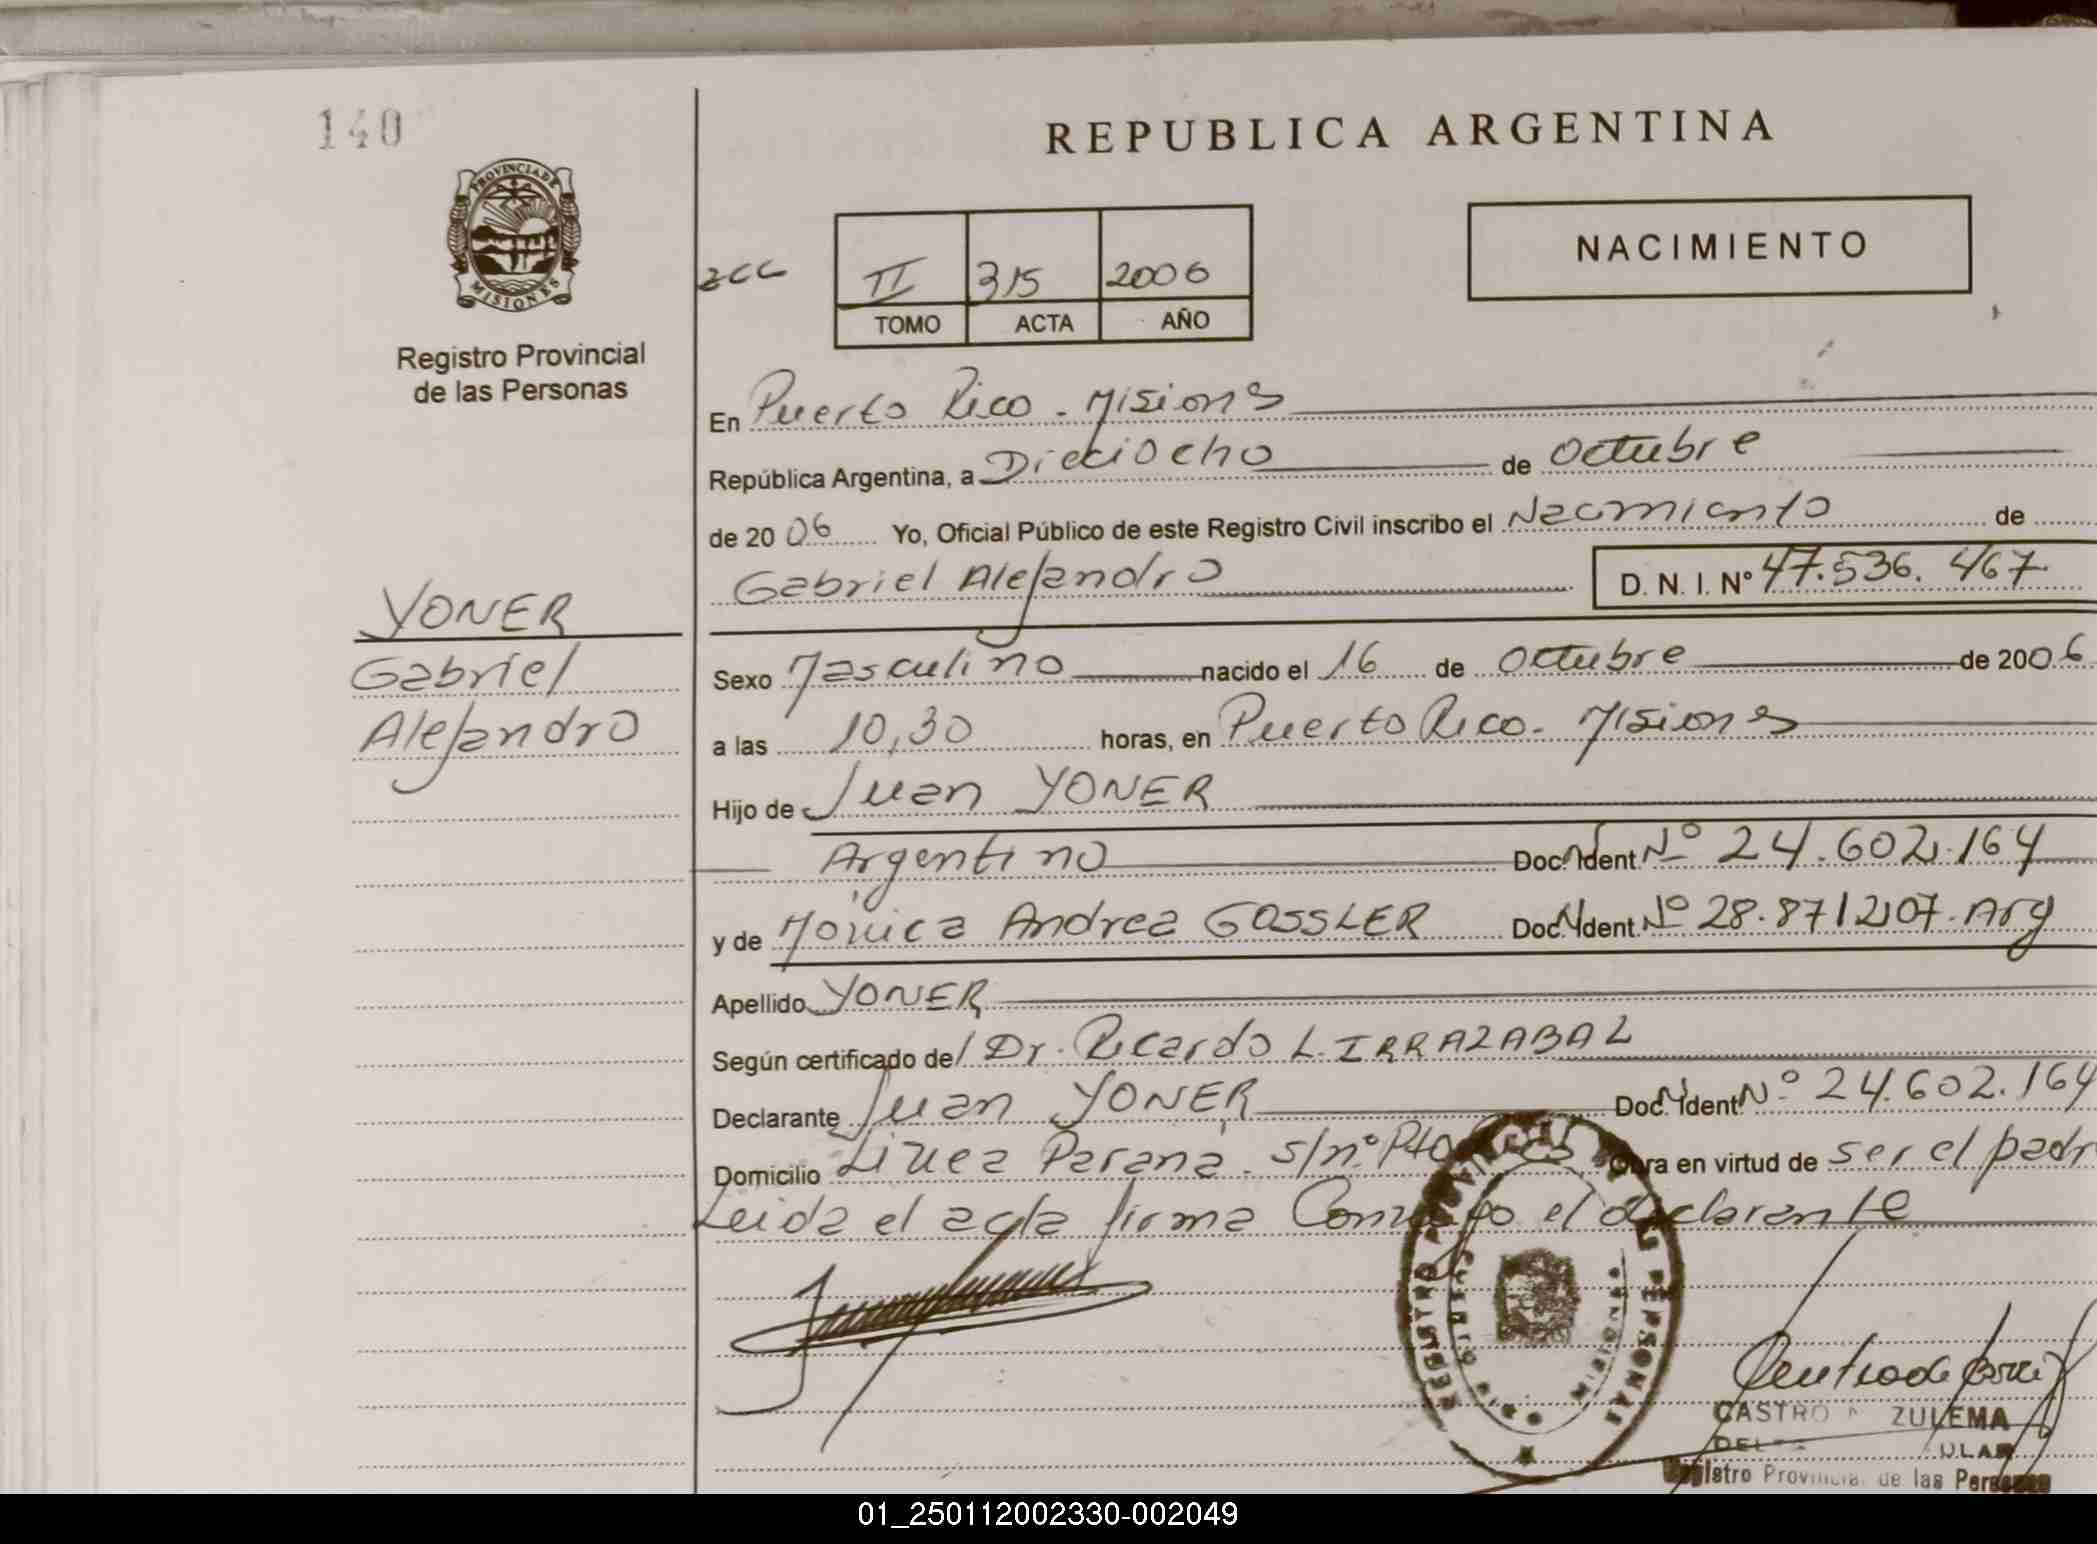 140
REPUBLICA ARGENTINA
PROVINCIA DE
MISIONES
Registro Provincial
de las Personas
II 315 2006
TOMO ACTA AÑO
NACIMIENTO
En Puerto Rico - Misiones
República Argentina, a Dieciocho de Octubre
de 2006 Yo, Oficial Público de este Registro Civil inscribo el Nacimiento de
Gabriel Alejandro D. N. I. N° 47.536.467
YONER
Gabriel
Alejandro
Sexo Masculino nacido el 16 de Octubre de 2006
a las 10,30 horas, en Puerto Rico - Misiones
Hijo de Juan YONER
Argentino Doc. Ident. Nº 24.602.164
y de Mónica Andrea GOSSLER Doc. Ident. Nº 28.871207. Arg
Apellido YONER
Según certificado del Dr. Ricardo L. IRRAZABAL
Declarante Juan YONER Doc. Ident. Nº 24.602.164
Domicilio Linea Paraná. s/nº Pto Obra en virtud de ser el padr
Leida el acta firma Conmigo el declarante
REGISTRO PROVINCIAL DE LAS PERSONAS
PUERTO RICO MISIONES
CASTRO ZULEMA
Registro Provincial de las Personas
01_250112002330-002049